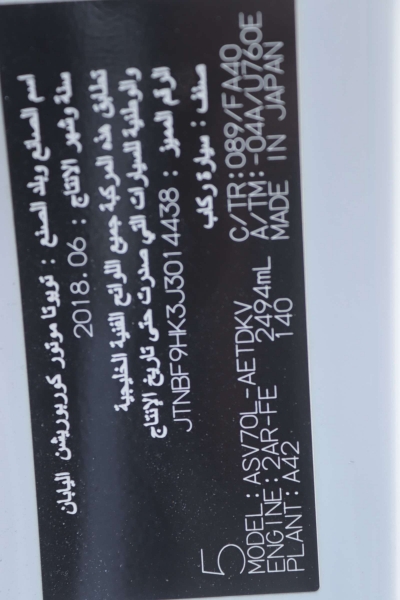 اسم الصانع وبلد الصنع : تويوتا موتور كوربوريشن اليابان
سنة وشهر الانتاج : 2018.06
تطابق هذه المركبة جميع اللوائح الفنية الخليجية
والوطنية للسيارات التي صدرت حتى تاريخ الإنتاج
الرقم المميز : JTNBF9HK3J3014438
صنف : سيارة ركاب
5
MODEL:ASV70L-AETDKV C/TR:089/FA40
ENGINE:2AR-FE 2494mL A/TM:-04A/U760E
PLANT:A42 140 MADE IN JAPAN